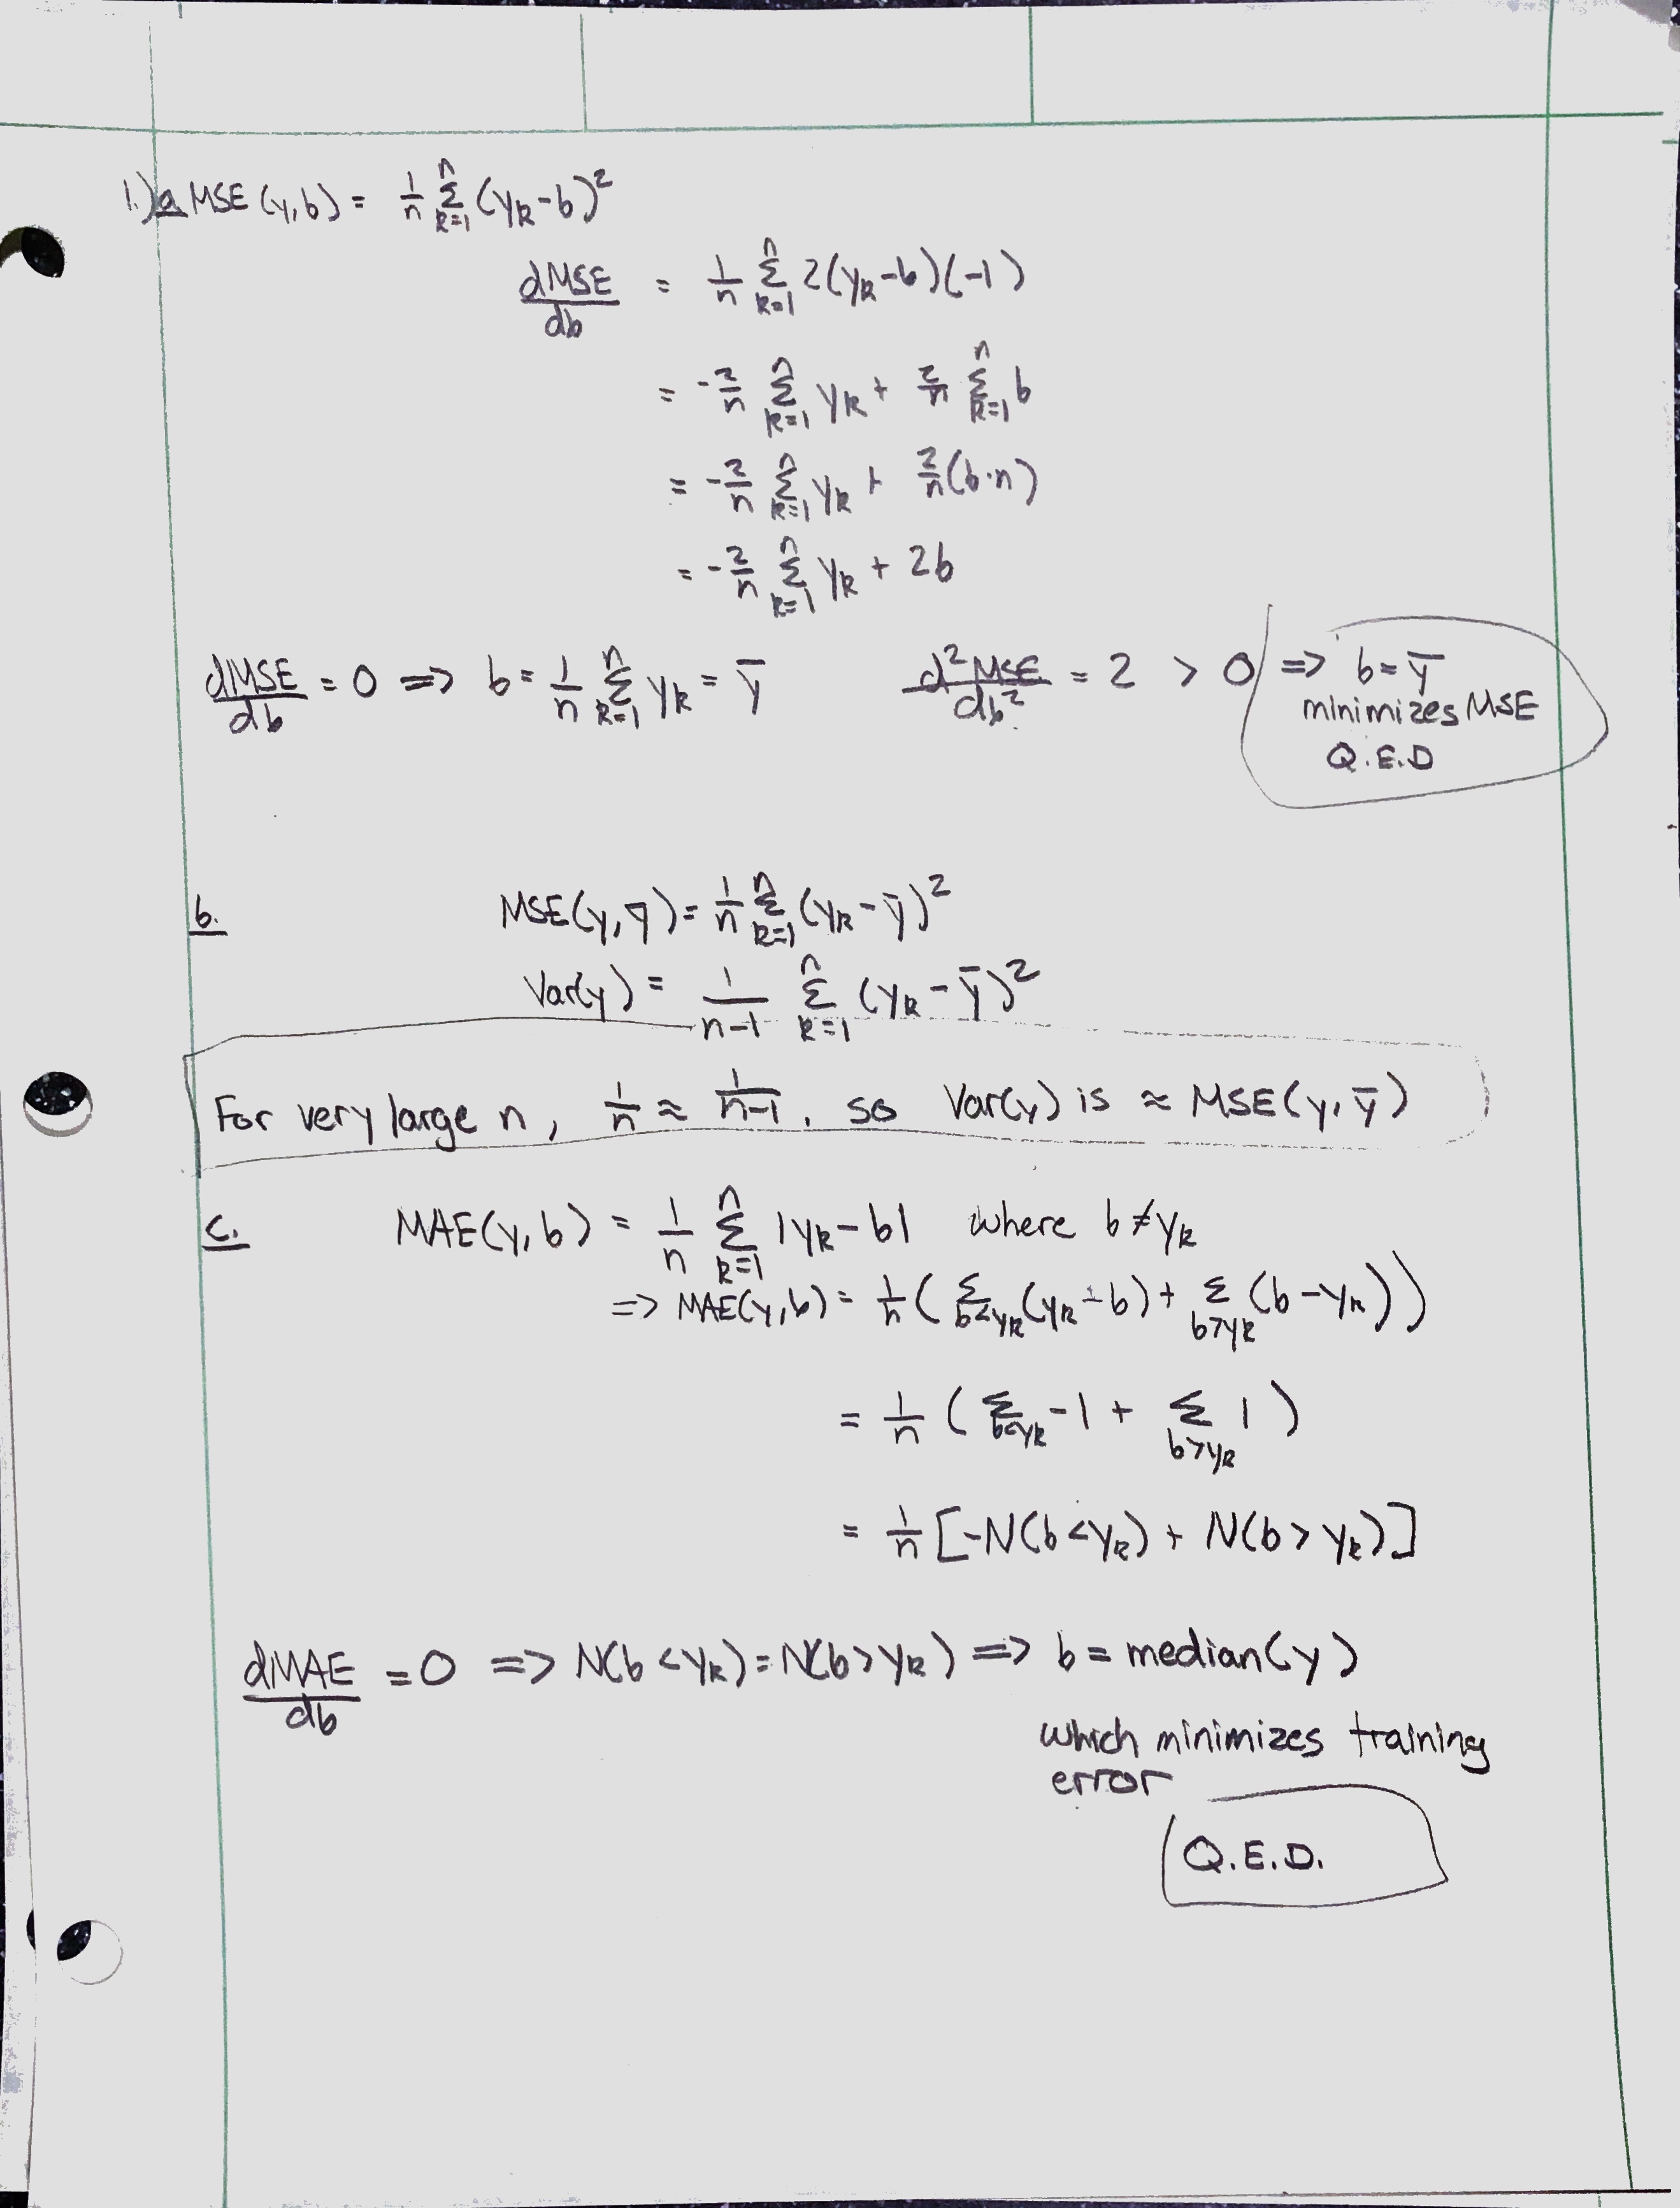 1.) a MSE (y, b) = 1/n Σ_{k=1}^n (y_k - b)²
dMSE/db = 1/n Σ_{k=1}^n 2(y_k - b)(-1)
= -2/n Σ_{k=1}^n y_k + 2/n Σ_{k=1}^n b
= -2/n Σ_{k=1}^n y_k + 2/n (b·n)
= -2/n Σ_{k=1}^n y_k + 2b
dMSE/db = 0 => b = 1/n Σ_{k=1}^n y_k = ȳ d²MSE/db² = 2 > 0 => b = ȳ
minimizes MSE
Q.E.D
b. MSE(y, ȳ) = 1/n Σ_{k=1}^n (y_k - ȳ)²
Var(y) = 1/(n-1) Σ_{k=1}^n (y_k - ȳ)²
For very large n, 1/n ≈ 1/(n-1), so Var(y) is ≈ MSE(y, ȳ)
c. MAE(y, b) = 1/n Σ_{k=1}^n |y_k - b| where b ≠ y_k
=> MAE(y, b) = 1/n ( Σ_{b<y_k} (y_k - b) + Σ_{b>y_k} (b - y_k))
= 1/n ( Σ_{b<y_k} -1 + Σ_{b>y_k} 1 )
= 1/n [-N(b < y_k) + N(b > y_k)]
dMAE/db = 0 => N(b < y_k) = N(b > y_k) => b = median(y)
which minimizes training
error
Q.E.D.